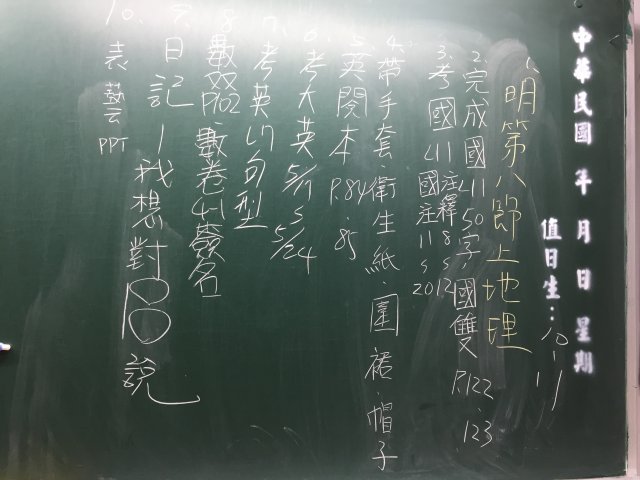 中華民國 年 月 日 星期
值日生：10、11
1、明第八節上地理
2、完成國L11 50字，國雙P.122、123
3、考國L11注釋8~12 國注11~20
4、帶手套、衛生紙、圍裙、帽子
5、英閱本P.84、85
6、考大英5/17~5/24
7、考英L7句型
8、數双P.62、數卷4-1簽名
9、日記－我想對
說
10、表藝PPT